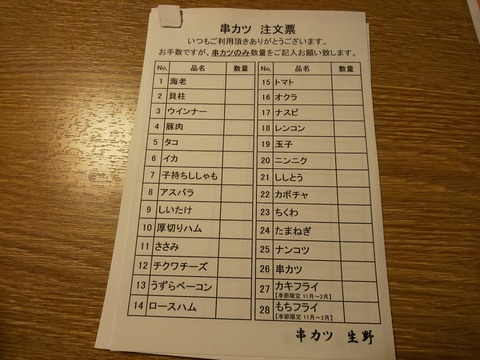 串カツ 注文票
いつもご利用頂きありがとうございます。
お手数ですが、串カツのみ数量をご記入お願い致します。
No. 品名 数量
1 海老
2 貝柱
3 ウインナー
4 豚肉
5 タコ
6 イカ
7 子持ちししゃも
8 アスパラ
9 しいたけ
10 厚切りハム
11 ささみ
12 チクワチーズ
13 うずらベーコン
14 ロースハム
No. 品名 数量
15 トマト
16 オクラ
17 ナスビ
18 レンコン
19 玉子
20 ニンニク
21 ししとう
22 カボチャ
23 ちくわ
24 たまねぎ
25 ナンコツ
26 串カツ
27 カキフライ
【季節限定 11月~2月】
28 もちフライ
【季節限定 11月~2月】
串カツ 生野